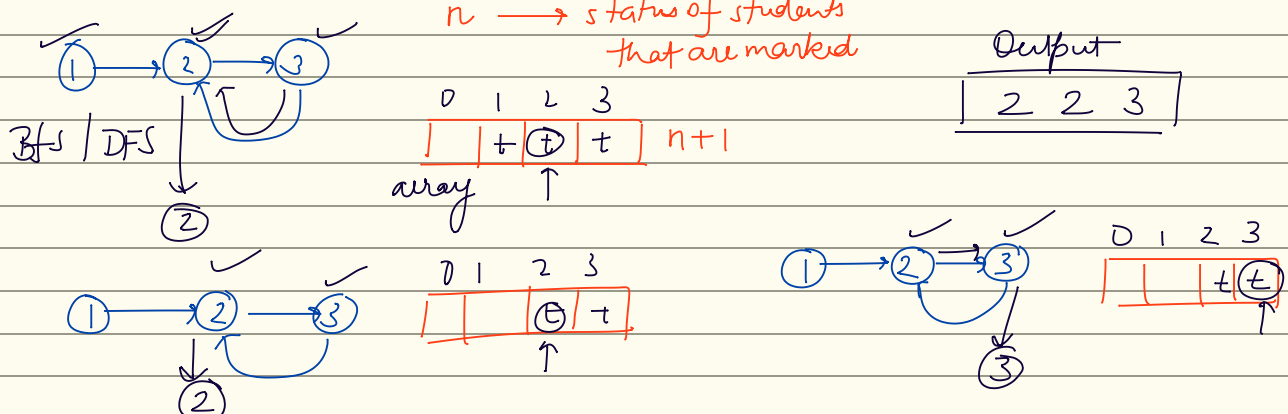 n → status of students
that are marked
Output
1 2 3
2 2 3
0 1 2 3
t t t n+1
BfS / DFS
array
2
0 1 2 3
1 2 3
t t
2
1 2 3
0 1 2 3
t t
3